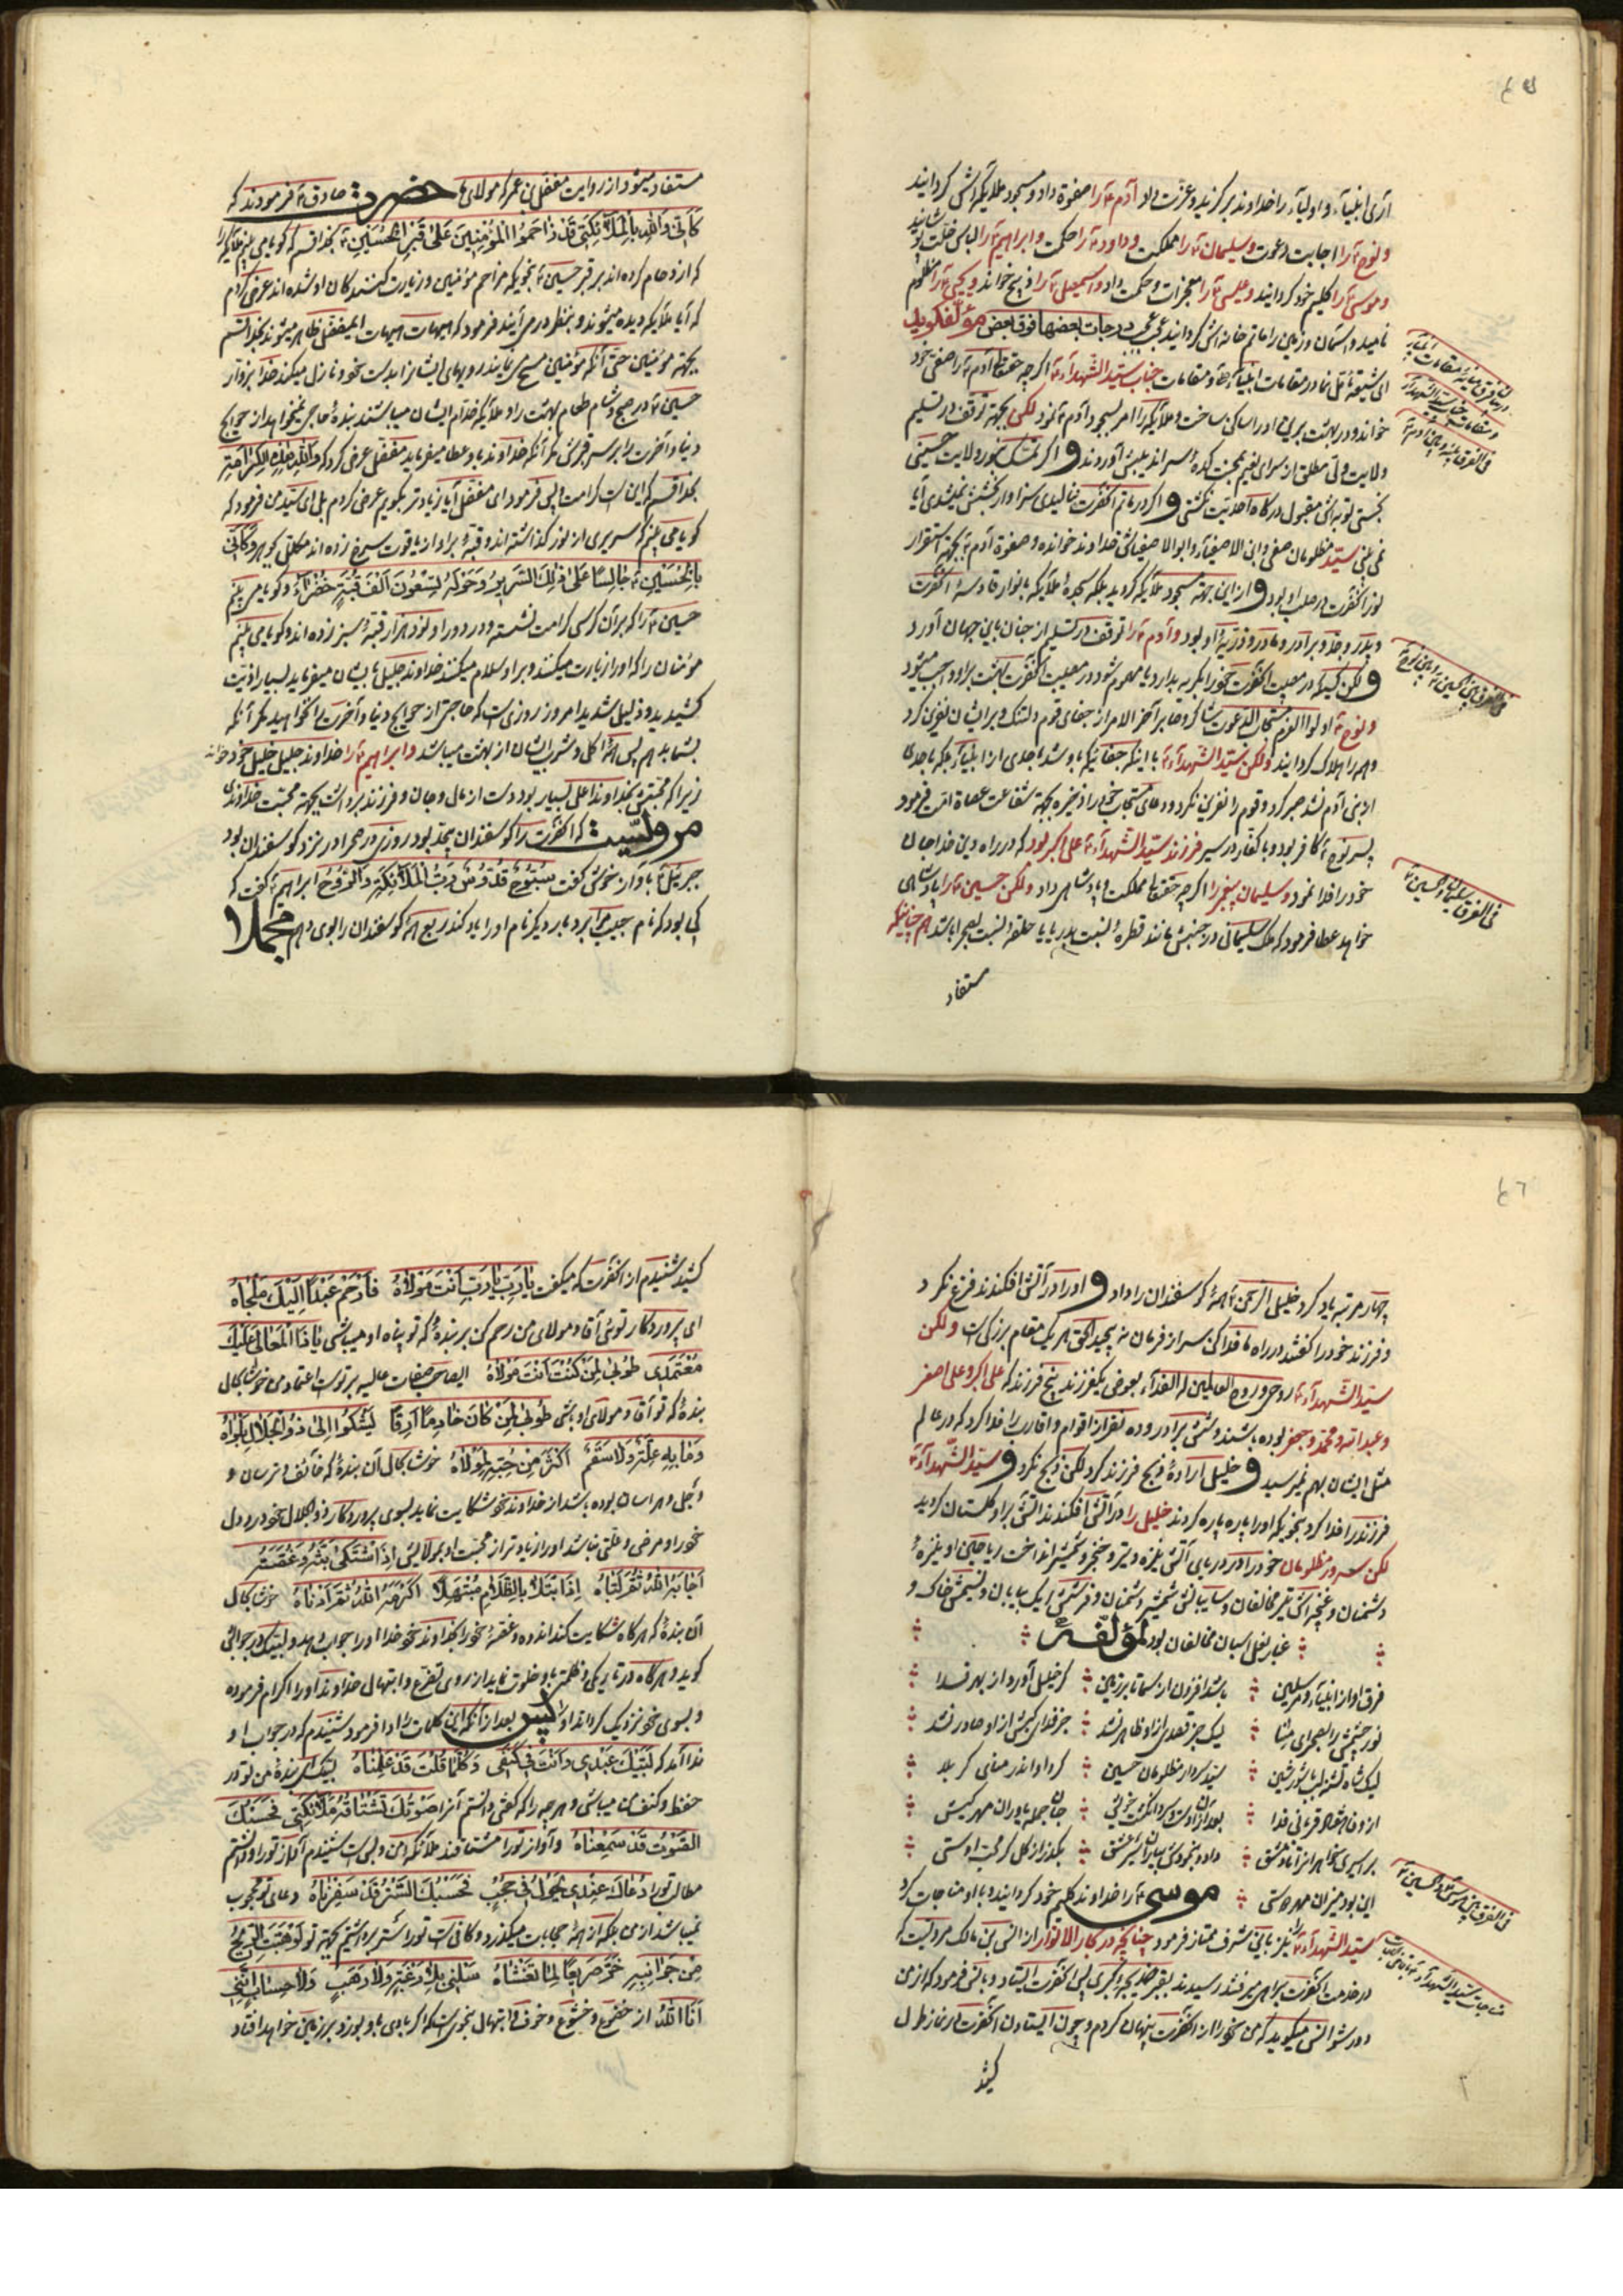 آری انبیآء و اولیآء را خداوند برگزید و عزّت داد آدم ع را صفوة داد و مسجود ملایکه اش گردانید
و نوح ع را اجابت دعوت و سلیمان ع را مملکت و داود ع را حکمت و ابراهیم ع را لباس خلّت پوشانید
و موسی ع را کلیم خود گردانید و عیسی ع را معجزات و حکمت داد و اسمعیل ع را ذبیح خواند و یحیی ع را مظلوم
نامید و آسمان و زمین را ماتم خانه اش گردانید درجات بعضها فوق بعض مؤلف گوید
ای شیعه تأمّل نما در مقامات انبیآء و مقامات جناب سیّد الشّهدآء ع اگر چه حقتعالی آدم ع را صفی خود
خواند و در بهشت برین او را ساکن ساخت و ملآئکه را امر بسجود آدم ع نمود لکن بجهة توقف در تسلیم
ولایت ولی مطلق از سرای نعیم بمحنت کده سراندیبش آوردند و اگر تمسّک بنور ولایت حسینی
نجستی توبه اش مقبول درگاه احدیّت نگشتی و اگر در ماتم آنحضرت ننالیدی سزاوار بخشش نمیشدی آیا
نمی بینی سیّد مظلومان صفی و ابن الاصفیآء و ابو الاصفیا اش خداوند خوانده و صفوة آدم ع بجهة استقرار
نور آنحضرت در صلب او بود و از این جهة مسجود ملآئکه گردید بلکه سجده ملآئکه بانوار قادسه آنحضرت
و پدر و جدّ و برادر و مادر و ذریّه او بود و آدم ع را توقف در تسلیم از جنان باین جهان آورد
و لکن کسیکه در مصیبت آنحضرت خود را بگریه بدارد یا مهموم شود در مصیبت آنحضرت بهشت بر او واجب میشود
و نوح ع اولوا العزم مستجاب الدعوت شاکر و صابر آخر الامر از جفای قوم دلتنگ و بر ایشان نفرین کرد
و همه را هلاک گردانید و لکن سیّد الشّهدآء ع با اینکه جفائیکه باو شد باحدی از انبیآء بلکه باحدی
از بنی آدم نشد صبر کرد و قوم را نفرین نکرد و دعای مستجاب خود را ذخیره بجهة شفاعت عصاة امّت فرمود
پسر نوح ع کافر بود و با کفّار در سیر فرزند سیّد الشّهدآء ع علی اکبر بود که در راه دین خدا جان
خود را فدا نمود و سلیمان پیغمبر را اگر چه حقتعالی مملکت و پادشاهی داد و لکن حسین ع را پادشاهی
خواهد عطا فرمود که ملک سلیمانی در جنبش مانند قطره نسبت بدریا یا حلقه نسبت بصحرا باشد هم چنانچه
مستفاد
فی الفرق بین نوح ع
فی الفرق سلیمان و الحسین ع
مستفاد میشود از روایت مفضّل بن عمر که مولای ما حضرت صادق ع فرمودند که
کَأَنّی وَاللّهِ بِالْمَلآئِکَةِ قَدْ زاحَمُوا الْمُؤْمِنِینَ عَلی قَبْرِ الْحُسَیْنِ ع بخدا قسم که گویا می بینم ملایکه را
که ازدحام کرده اند بر قبر حسین ع بنحویکه مزاحم مؤمنین و زیارت کنندگان او شده اند عرض کردم
که آیا ملآئکه دیده میشوند و بنظر در می آیند فرمود که هیهات هیهات ای مفضّل ظاهر میشوند بخدا قسم
بجهة مؤمنین حتّی آنکه مؤمنین مسح می نمایند رویهای ایشانرا بدست خود و نازل میکند خدا بزوّار
حسین ع در صبح و شام طعام بهشت را و ملآئکه خدّام ایشان میباشند بنده حاجتی نمیخواهد از حوایج
دنیا و آخرت را بر سر قبرش مگر آنکه خداوند باو عطا میفرماید مفضّل عرض کرد که وَاللّهِ هذِهِ الْکَرامَةِ
بخدا قسم که این است کرامت الهی فرمود ای مفضّل آیا زیادتر بگویم عرض کردم بلی ای سیّد من فرمود که
گویا می بینم که سریری از نور گذاشته اند و قبّه بر او از یاقوت سرخ زده اند مکلّل بجواهر و کَاَنّی
بِالْحُسَیْنِ ع جالِساً عَلی ذلِکَ السَّریرِ وَ حَوْلَهُ تِسْعُونَ اَلْفَ قُبَّةٍ خَضْرآءَ و گویا می بینم
حسین ع را که بر آن کرسی کرامت نشسته و در دور او نود هزار قبّه سبز زده اند و گویا می بینم
مؤمنان را که او را زیارت میکنند و بر او سلام میکنند خداوند جلیل بایشان میفرماید بسیار اذیّت
کشیدید و ذلیل شدید امروز روزی است که حاجتی از حوایج دنیا و آخرت را نخواهید مگر آنکه
بشما بدهم پس اکل و شرب ایشان از بهشت میباشد و ابراهیم ع را خداوند جلیل خلیل خود خوانده
زیرا که محبّتش بخداوند اعلی بسیار بود دست از مال و جان و فرزند برداشت بجهة محبّت خداوندی
مرویست که آنحضرت را گوسفندان بیحد بود روزی در صحرا در نزد گوسفندان بود
جبرئیل ع بآواز خوش گفت سُبُّوحٌ قُدُّوسٌ رَبُّ الْمَلآئِکَةِ وَالرُّوحِ ابراهیم ع گفت که
کی بود که نام حبیب مرا برد بار دیگر نام او را یاد کند ربع گوسفندان را بوی دهم مجملا
چهار مرتبه یاد کرد خلیل الرّحمن ع همه گوسفندان را داد و او را در آتش افکندند فزع نکرد
و فرزند خود را گفتند در راه ما فدا کن سر از فرمان نه پیچید الحق هر یک مقام بزرگی است و لکن
سیّد الشّهدآء ع روحی و روح العالمین له الفدآء بعوض یکفرزند پنج فرزند که علی اکبر و علی اصغر
و عبداللّه و محمّد و جعفر بوده باشند و شش برادر و ده نفر از اقوام و اقارب را فدا کرد که در عالم
مثل ایشان بهم نمیرسید و خلیل ارادۀ ذبح فرزند کرد لکن ذبح نکرد و سیّد الشّهدآء ع
فرزند را فدا کرد بنحویکه او را پاره پاره کردند خلیل را در آتش افکندند آتش بر او گلستان گردید
لکن سرور مظلومان خود را در دریای آتش نیزه و تیر و خنجر و شمشیر انداخت ریاحین او نیزۀ
دشمنان و غنچه اش تیر مخالفان و سایبانش شمشیر دشمنان و فرشش ریک بیابان و نسیمش خاک و
غبار نعل اسبان مخالفان بود لمؤلّفه
فرق او از انبیآء و مرسلین باشد افزون از سما تا بر زمین گر خلیل آورد از بهر فدا
نور چشمش را بصحرای منا لیک جز قصدی از او ظاهر نشد جز فدای کبش از او صادر نشد
لیک شاه تشنه لب با شور و شین سیّد و سردار مظلومان حسین کرد او اندر منای کربلا
این بود میزان مهر دوستی موسی ع را خداوند کلیم خود گردانید و با او مناجات کرد
سیّد الشّهدآء ع را نیز باین شرف ممتاز فرمود چنانچه در بحار الانوار از انس بن مالک مرویست که
در خدمت آنحضرت براهی میرفتند رسیدند بقبر خدیجه کبری پس آنحضرت ایستاد و بانس فرمود که از من
دور شو انس میگوید که من خود را از آنحضرت پنهان کردم و چون ایستادن آنحضرت در نماز طول
کشید
فی الفرق بین موسی و الحسین ع
کشید شنیدم از آنحضرت که میگفت یا رَبِّ یا رَبِّ اَنْتَ مَوْلاهُ فَارْحَمْ عَبْداً اِلَیْکَ مَلْجاهُ
ای پروردگار توئی آقا و مولای من رحم کن بر بندۀ که تو پناه او میباشی یا ذَا الْمَعالی عَلَیْکَ
مُعْتَمَدی طُوبی لِمَنْ کُنْتَ اَنْتَ مَوْلاهُ ایصاحب صفات عالیه بر توست اعتماد من خوشا بحال
بندۀ که تو آقا و مولای او باشی طُوبی لِمَنْ کانَ خادِماً اَرِقاً یَشْکُوا اِلی ذُو الْجَلالِ بَلْواهُ
وَ ما بِهِ عِلَّةٌ وَلا سَقَمٌ اَکْثَرَ مِنْ حُبِّهِ لِمَوْلاهُ خوشا بحال آن بندۀ که خائف و ترسان و
وجل و هراسان بوده باشد از خداوند خود شکایت نماید بسوی پروردگار ذو الجلال خود درد دل
خود را و مرضی و علّتی نباشد او را زیادتر از محبّت او بمولایش اِذَا اشْتَکی بَثَّهُ وَ غُصَّتَهُ
اَجابَهُ اللّهُ ثُمَّ لَبّاهُ اِذَا ابْتَلا بِالظَّلامِ مُبْتَهِلاً اَکْرَمَهُ اللّهُ ثُمَّ اَدْناهُ خوشا بحال
آن بندۀ که هرگاه شکایت کند اندوه و غصّۀ خود را بخداوند خود خدا او را جواب دهد و لبّیک در جوابش
گوید و هرگاه در تاریکی و ظلمت باو خلوت نماید از روی تضرّع و ابتهال خداوند او را اکرام فرموده
و بسوی خود نزدیک گرداند او را پس بعد از آنکه این کلمات را ادا فرمود شنیدم که در جواب او
ندا آمد که لَبَّیْکَ عَبْدی وَ اَنْتَ فی کَنَفی وَ کُلَّما قُلْتَ قَدْ عَلِمْناهُ لبّیک ای بندۀ من تو در
حفظ و کنف من میباشی و هر چه را که گفتی دانستم آنرا صَوْتُکَ تَشْتاقُهُ مَلآئِکَتی فَحَسْبُکَ
الصَّوْتُ قَدْ سَمِعْناهُ و آواز تو را مشتاقند ملآئکه من و بس است شنیدم آواز تو را و دانستم
مطالب تو را دُعاکَ عِنْدی یَجُولُ فی حُجُبٍ فَحَسْبُکَ السَّتْرُ قَدْ سَفَرْناهُ دعای تو محجوب
نمیباشد از من بلکه از همه حجابات میگذرد و کافیست تو را ستر برداشتم بجهة تو لَوْ هَبَّتِ الرّیحُ
مِنْ جَوانِبِهِ خَرَّ صَریعاً لِما تَغَشّاهُ سَلْنی بِلا رَغْبَةٍ وَلا رَهَبٍ وَلا حِسابٍ اِنّی
اَنَا اللّهُ از خضوع و خشوع و خوف و ابتهال بنحوی است که اگر بادی باو بوزد بر زمین خواهد افتاد